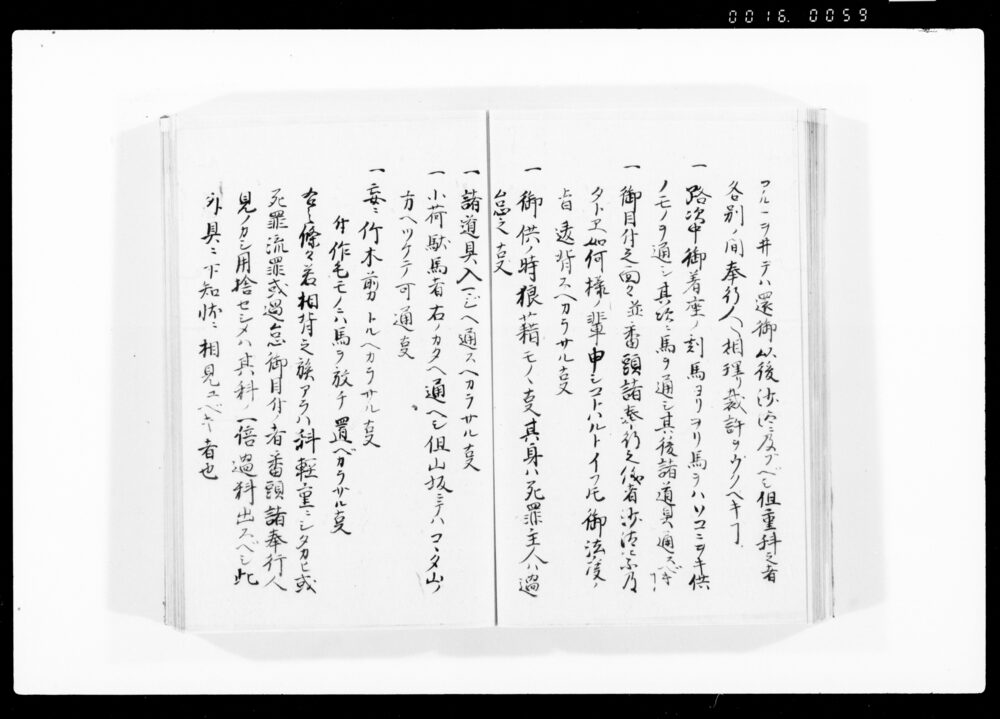 0016. 0059
ヲ井テハ還御以後沙汰ニ及ブベシ但重科之者
各別ノ間奉行人ヘ相理リ裁許ヲウクヘキヿ
一 路次中御着座ノ刻馬ヨリヲリ馬ヲハソコニヲキ供
ノモノヲ通シ其次ニ馬ヲ通シ其後諸道具通スベキヿ
一 御目付之面々並番頭諸奉行之儀者沙汰ニ不及
タトヱ如何様ノ輩申シコトハルトイフ圧御法度ノ
旨違背スヘカラサル事
一 御供ノ時狼藉モノヽ事其身ハ死罪主人ハ過
怠之事
一 諸道具入マジヘ通スヘカラサル事
一 小荷駄馬者右ノカタヘ通ヘシ但山坂ニテハコヽタ山ノ
方ヘツケテ可通事
一 妄ニ竹木剪トルヘカラサル事
付作毛モノニ馬ヲ放チ置ベカラザル事
右之條々若相背之族アラハ科軽重ニシタカヒ或
死罪流罪或過怠御目付者番頭諸奉行人
見ノカシ用捨セシメハ其科ノ一倍過料出スベシ此
外具ニ下知状ニ相見ユベキ者也